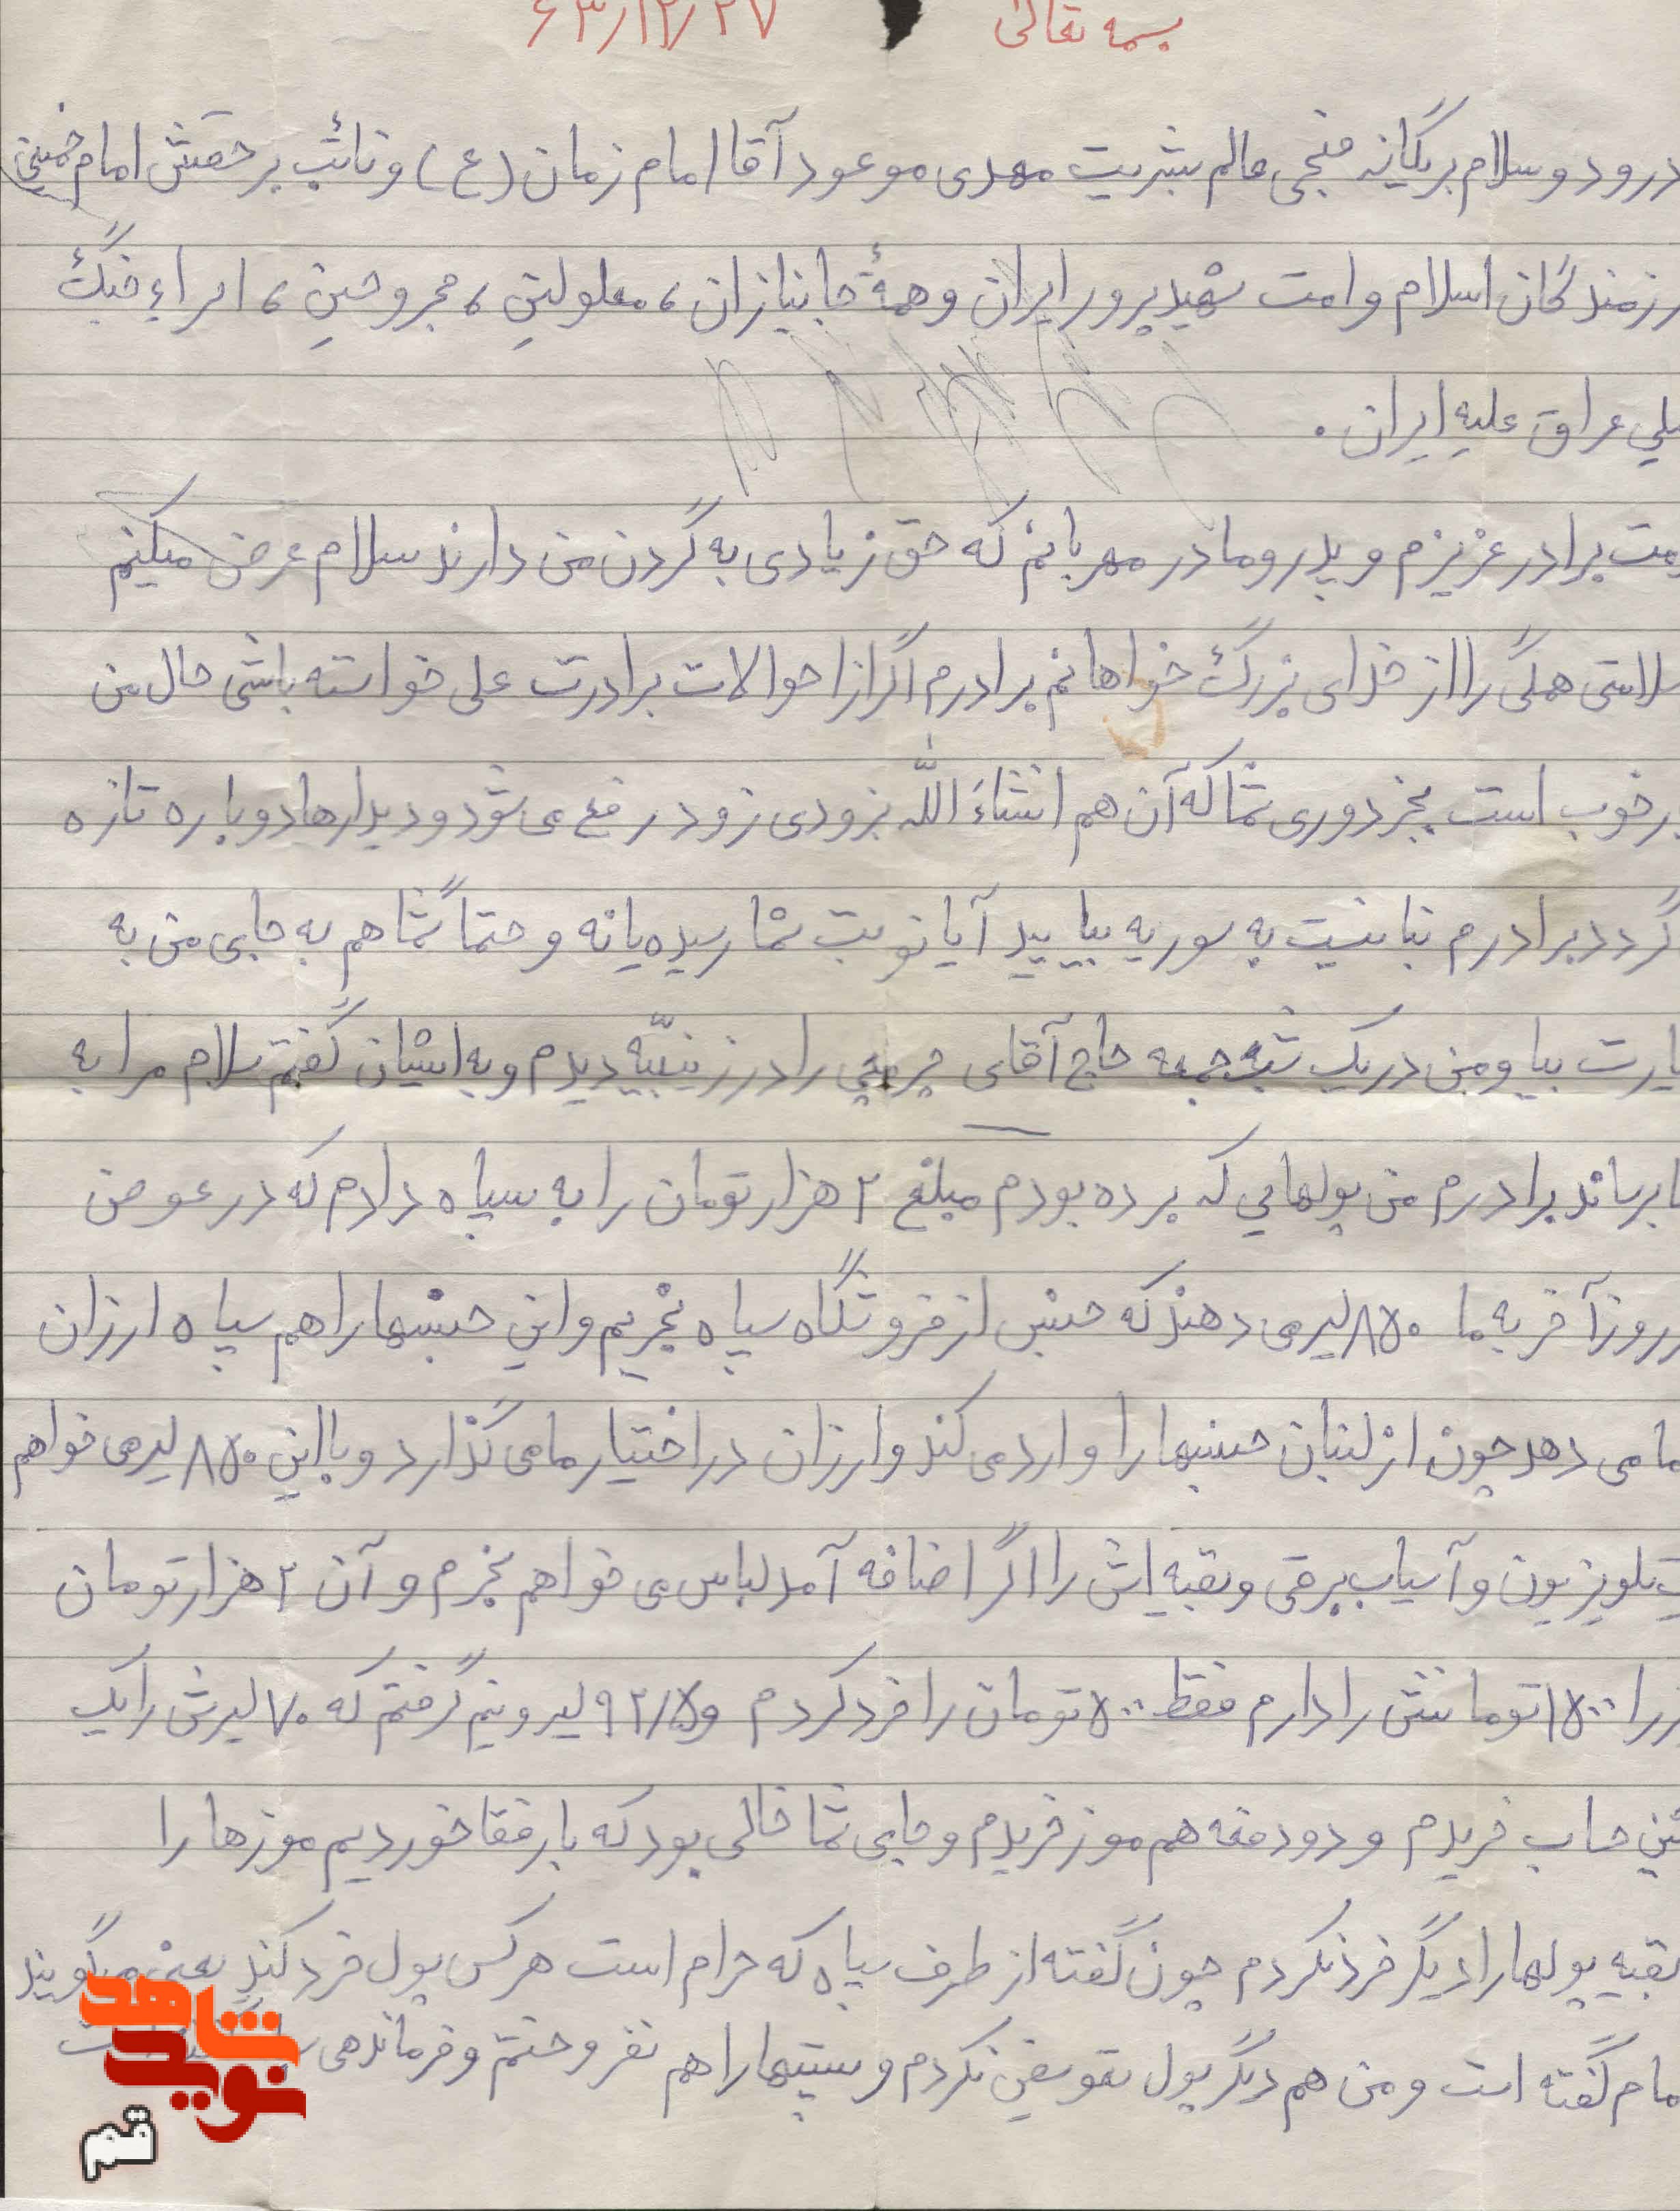 بسمه تعالی ۶۳/۱۲/۲۷
درود و سلام بر یگانه منجی عالم بشریت مهدی موعود آقا امام زمان (ع) و نائب بر حقش امام خمینی
رزمندگان اسلام و امت شهید پرور ایران و همهٔ جانبازان، معلولین، مجروحین، اسراءِ جنگ
عراق علیه ایران.
برادر عزیزم و پدر و مادر مهربانم که حق زیادی به گردن من دارند سلام عرض میکنم
سلامتی همگی را از خدای بزرگ خواهانم برادرم اگر از احوالات برادرت علی خواسته باشی حال من
خوب است بجز دوری شما که آن هم انشاءَ اللّه بزودی زود رفع می شود و دیدارها دوباره تازه
گردد برادرم بنا نیست به سوریه بیایید آیا نوبت شما رسیده یا نه و حتماً شما هم به جای من به
بیا و من در یک شب جمعه حاج آقای را در زینبیّه دیدم و به ایشان گفتم سلام مرا به
برساند برادرم من پولهایی که برده بودم مبلغ ۲ هزار تومان را به سپاه دادم که در عوض
روز آخر به ما ۸۵۰ لیر می دهند که جنس از فروشگاه سپاه بخریم و این جنسها را هم سپاه ارزان
می دهد چون از لبنان جنسها را وارد می کند و ارزان در اختیار ما می گذارد و با این ۸۵۰ لیر می خواهم
تلویزیون و آسیاب برقی و بقیه اش را اگر اضافه آمد لباس می خواهم بخرم و آن ۲ هزار تومان
را ۱۵۰۰ تومانش را دارم فقط ۵۰۰ تومان را خرد کردم و ۹۲/۵ لیر و نیم گرفتم که ۷۰ لیرش را یک
حساب خریدم و دو دفعه هم موز خریدم و جای شما خالی بود که با رفقا خوردیم موزها را
بقیه پولها را دیگر خرد نکردم چون گفته از طرف سپاه که حرام است هر کس پول خرد کند یعنی میگویند
گفته است و من هم دیگر پول تعویض نکردم و پستها را هم نفروختم و فرماندهی
شاهد
نوید
قم